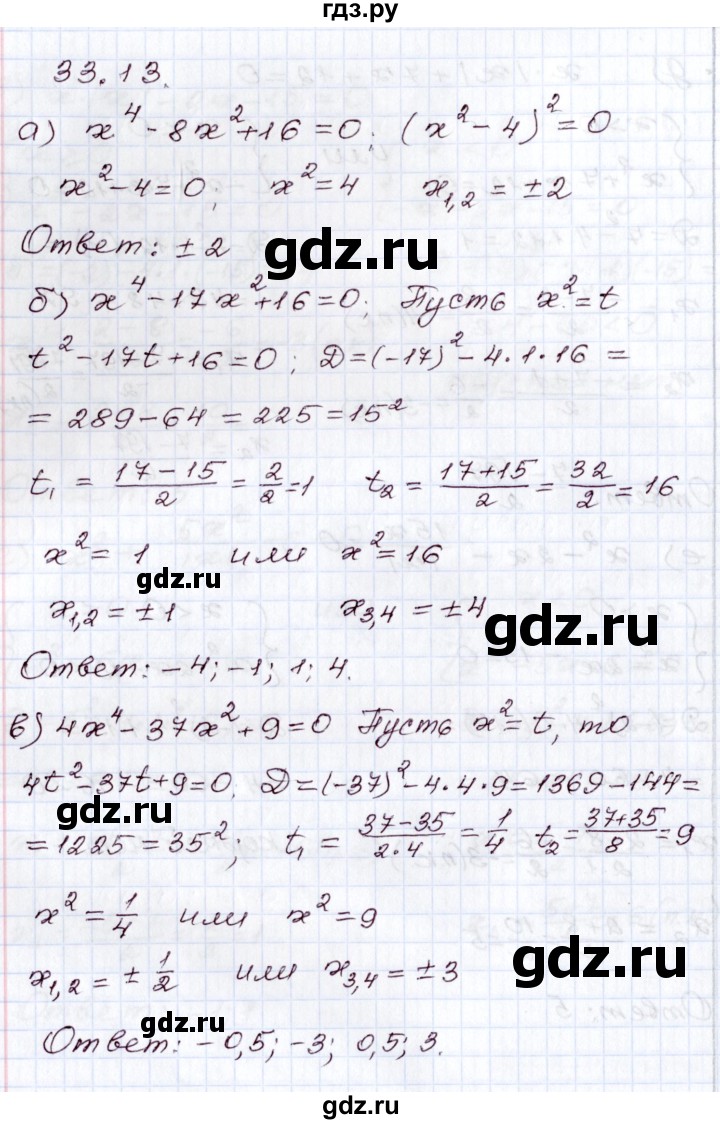 гдз.ру
33.13.
а) x⁴ - 8x² + 16 = 0; (x² - 4)² = 0
x² - 4 = 0, x² = 4 x₁,₂ = ± 2
Ответ: ± 2
gdz.ru
б) x⁴ - 17x² + 16 = 0; Пусть x² = t
t² - 17t + 16 = 0; D = (-17)² - 4·1·16 =
= 289 - 64 = 225 = 15²
t₁ = (17-15)/2 = 2/2 = 1 t₂ = (17+15)/2 = 32/2 = 16
x² = 1 или x² = 16
gdz.ru
x₁,₂ = ± 1 x₃,₄ = ± 4
gdz.ru
Ответ: - 4; -1; 1; 4.
в) 4x⁴ - 37x² + 9 = 0 Пусть x² = t, то
4t² - 37t + 9 = 0, D = (-37)² - 4·4·9 = 1369 - 144 =
gdz.ru
= 1225 = 35²; t₁ = (37-35)/(2·4) = 1/4 t₂ = (37+35)/8 = 9
x² = 1/4 или x² = 9
gdz.ru
x₁,₂ = ± 1/2 или x₃,₄ = ± 3
gdz.ru
Ответ: - 0,5; -3; 0,5; 3.
gdz.ru